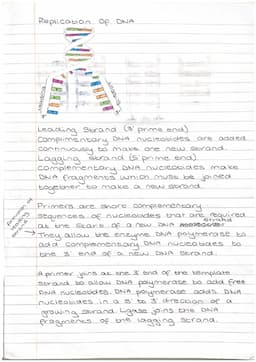 Replication Of DNA
Leading Strand (3' prime end)
Complimentary DNA nucleotides are added
continuously to make one new strand.
Lagging strand (5 prime end)
Complementary DNA nucleotides make
DNA fragments which must be joined
together to make a new strand.
Primers are short complementary
sequences of nucleotides that are required
at the start of a new DNA strand
They allow the enzyme DNA polymerase to
add complementary DNA nucleotides to
the 3' end of a new DNA strand.
A primer joins at the 3' end of the template
strand to allow DNA polymerase to add free
DNA nucleotides. DNA polymerase adds DNA
nucleotides in a 5' to 3' direction of a
growing strand. Ligase joins the DNA
fragments of the lagging strand.